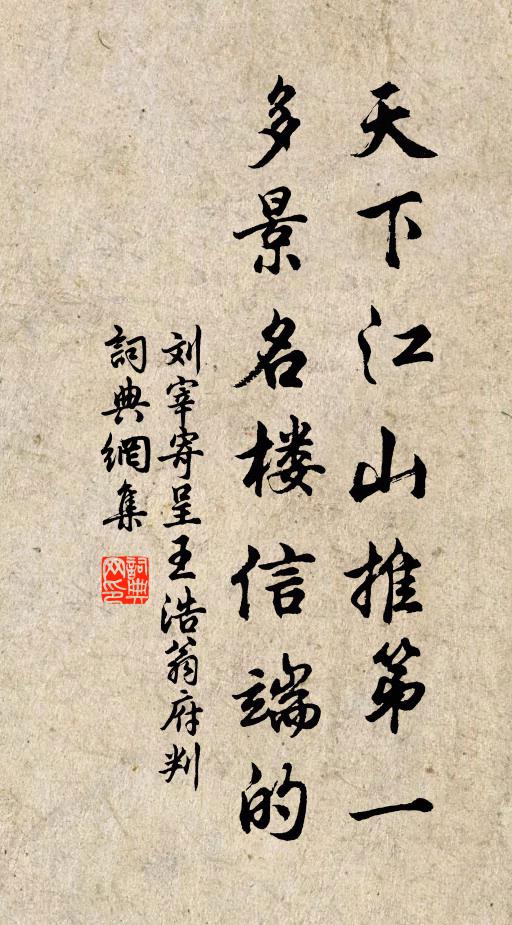 天下江山推第一
多景名楼信端的
刘宰寄呈王浩翁府判
詞典網集
詞典
网印